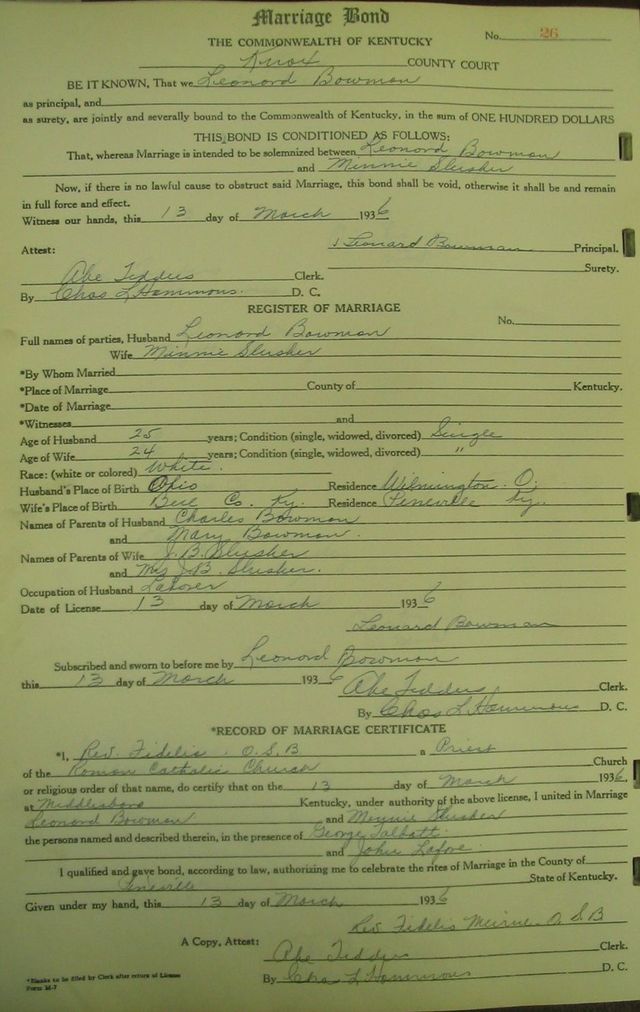 Marriage Bond
No. 26
THE COMMONWEALTH OF KENTUCKY
Knox COUNTY COURT
BE IT KNOWN, That we Leonord Bowman
as principal, and
as surety, are jointly and severally bound to the Commonwealth of Kentucky, in the sum of ONE HUNDRED DOLLARS
THIS BOND IS CONDITIONED AS FOLLOWS:
That, whereas Marriage is intended to be solemnized between Leonord Bowman
and Minnie Slusher
Now, if there is no lawful cause to obstruct said Marriage, this bond shall be void, otherwise it shall be and remain
in full force and effect.
Witness our hands, this 13 day of March 1936
Attest: Leonard Bowman Principal.
Surety.
Abe Tedders Clerk.
By Chas L Hammons. D. C.
REGISTER OF MARRIAGE
No.
Full names of parties, Husband Leonord Bowman
Wife Minnie Slusher
*By Whom Married
*Place of Marriage County of Kentucky.
*Date of Marriage
*Witnesses and
Age of Husband 25 years; Condition (single, widowed, divorced) Single
Age of Wife 24 years; Condition (single, widowed, divorced) "
Race: (white or colored) White.
Husband's Place of Birth Ohio Residence Wilmington O.
Wife's Place of Birth Bell Co. Ky. Residence Pineville Ky.
Names of Parents of Husband Charles Bowman
and Mary Bowman.
Names of Parents of Wife J.B. Slusher
and Mrs J.B. Slusher.
Occupation of Husband Laborer
Date of License 13 day of March 1936
Leonard Bowman
Subscribed and sworn to before me by Leonord Bowman
this 13 day of March 1936
Abe Tedders Clerk.
By Chas L Hammons D. C.
*RECORD OF MARRIAGE CERTIFICATE
*I, Rev. Fidelis. O.S.B a Priest
of the Roman Catholic Church Church
or religious order of that name, do certify that on the 13 day of March 1936,
at Middlesboro Kentucky, under authority of the above license, I united in Marriage
Leonord Bowman and Minnie Slusher
the persons named and described therein, in the presence of George Talbott
and John
I qualified and gave bond, according to law, authorizing me to celebrate the rites of Marriage in the County of
Pineville State of Kentucky.
Given under my hand, this 13 day of March 1936
Rev. Fidelis O S B
A Copy, Attest: Abe Tedders Clerk.
By Chas L Hammons D. C.
*Blanks to be filled by Clerk after return of License
Form M-7